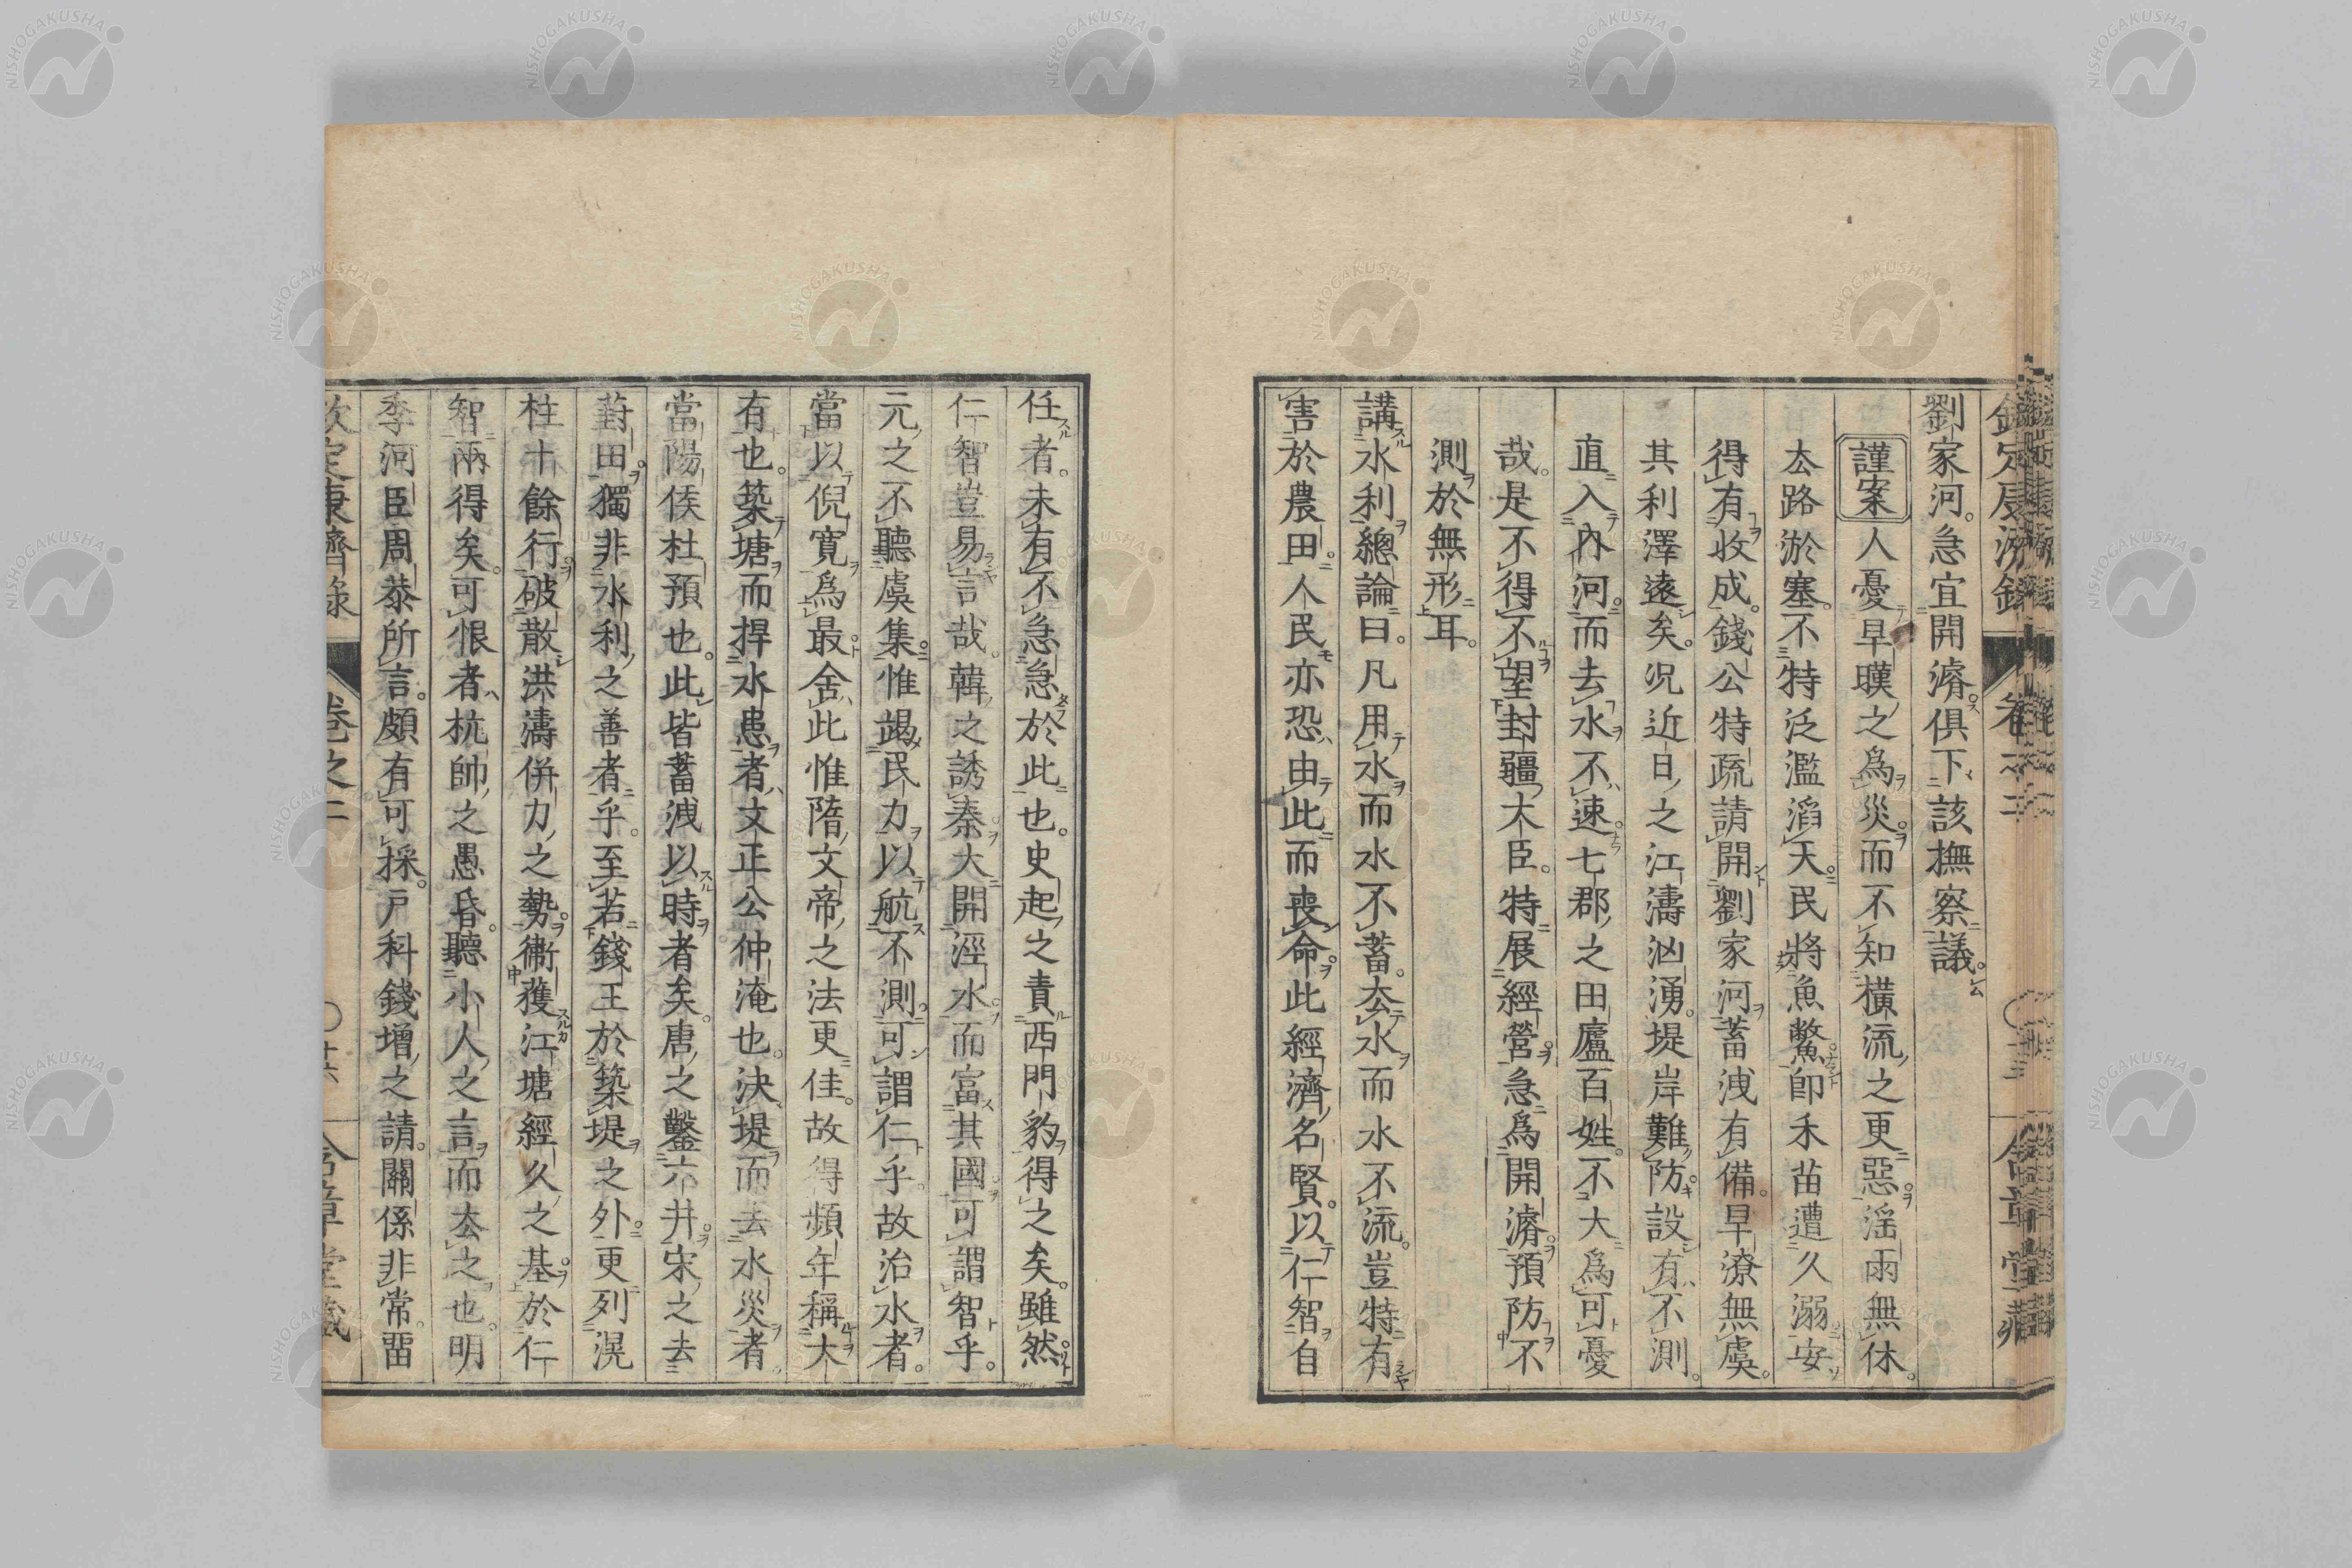 劉家河。急宜開濬。俱下該撫察議。
謹案人憂旱暵之爲災。而不知橫流之更惡。淫雨無休。
厺路淤塞。不特泛濫滔天。民將魚鱉。卽禾苗遭久溺。安
得有收成。錢公特疏請開劉家河蓄洩有備。旱潦無虞。
其利澤遠矣。況近日之江濤汹湧。堤岸難防。設有不測。
直入內河。而去水不速。七郡之田廬百姓。不大爲可憂
哉。是不得不望封疆大臣。特展經營。急爲開濬。預防不
測於無形耳。
講水利總論曰。凡用水而水不蓄。厺水而水不流。豈特有
害於農田。人民亦恐由此而喪命。此經濟名賢。以仁智自
任者。未有不急急於此也。史起之責西門豹得之矣。雖然。
仁智豈易言哉。韓之誘秦。大開涇水。而富其國。可謂智乎。
元之不聽虞集。惟竭民力以航不測。可謂仁乎。故治水者。
當以倪寬爲最。舍此惟隋文帝之法更佳。故得頻年稱大
有也。築塘而捍水患者。文正公仲淹也。決堤而去水災者。
當陽侯杜預也。此皆蓄洩以時者矣。唐之鑿六井。宋之去
葑田。獨非水利之善者乎。至若錢王於築堤之外。更列滉
柱十餘行。破散洪濤併力之勢。衛獲江塘經久之基。於仁
智兩得矣。可恨者杭帥之愚昏。聽小人之言而厺之也。明
季河臣周恭所言。頗有可採。戶科錢增之請。關係非常。畱
欽定康濟錄 卷之二 〇十六
NISHOGAKUSHA